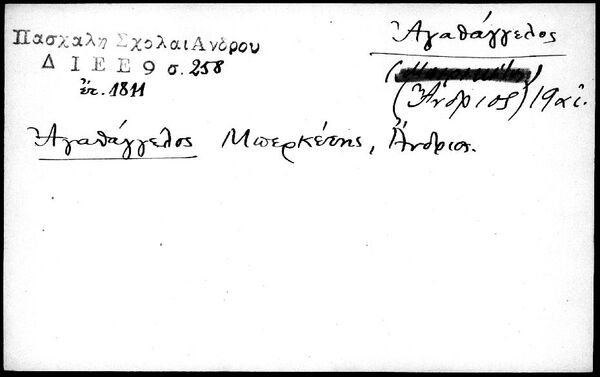 Πασχαλη Σχολαι Ανδρου
ΔΙΕΕ 9 σ. 258
ἔτ. 1811
Ἀγαθάγγελος
(Ἄνδριος) 19 αἰ.
Ἀγαθάγγελος Μπερκέτης, Ἄνδριος.